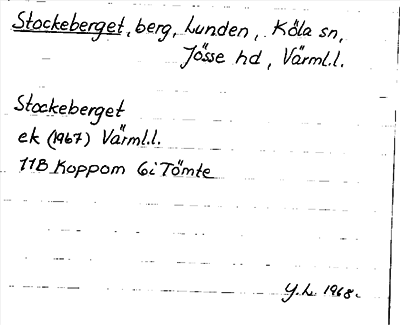 Stockeberget, berg, Lunden, Köla sn,
Jösse hd, Värml.l.
Stockeberget
ek (1967) Värml.l.
11B Koppom 6i Tömte
Y.L. 1968.